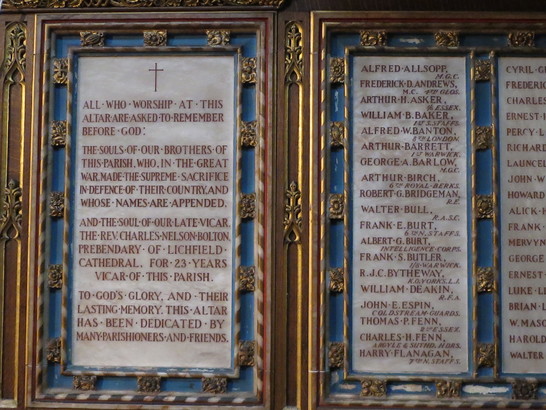 ALL·WHO·WORSHIP·AT·THIS
ALTAR·ARE·ASKED·TO·REMEMBER
BEFORE·GOD:
THE·SOULS·OF·OUR·BROTHERS·OF
THIS·PARISH,WHO,IN·THE·GREAT
WAR,MADE·THE·SUPREME·SACRIFICE
IN·DEFENCE·OF·THEIR·COUNTRY,AND
WHOSE·NAMES·ARE·APPENDED.
AND·THE·SOUL·OF·OUR·LATE·VICAR,
THE·REV.CHARLES·NELSON·BOLTON,
PREBENDARY·OF·LICHFIELD
CATHEDRAL, FOR·23·YEARS
VICAR·OF·THIS·PARISH.
TO·GOD'S·GLORY, AND·THEIR
LASTING·MEMORY, THIS·ALTAR
HAS·BEEN·DEDICATED·BY
MANY·PARISHIONERS·AND·FRIENDS.
ALFRED·ALLSOPP,
M.G.C.
FREDERICK·D.ANDREWS,
M.C.
ARTHUR·H.ASKER,
ESSEX.
WILLIAM·B.BAKER,
S.STAFFS.
ALFRED·W.BANTON,
LONDON.
ARTHUR·BARRETT,
WARWICK.
GEORGE·A.BARLOW,
M.G.C.
ARTHUR·BIRCH,
ROYAL·BERKS.
ROBERT·G.BRIDGEMAN,
R.E.
WALTER·BULL,
R.A.S.C.
FRANK·E.BURT,
6TH N.STAFFS.
ALBERT·G.BURT,
INTELLIGENCE·CORPS.
FRANK·S.BUTLER,
WARWICK.
R.J.C.BYTHEWAY,
WILLIAM·DEAKIN,
R.F.A.
JOHN·E.ESPIN,
COLDSTREAM·GUARDS.
THOMAS·P.FENN,
ESSEX.
CHARLES·H.FENN,
ARGYLE & SUTHD.HDRS.
HARRY·FLANAGAN,
7TH N.STAFFS.
CYRIL·G
FREDERI
CHARLES
ERNEST·
PERCY·L
RICHARD
LAUNCEL
JOHN·W
HOWARD
ALICK·H
FRANK·
MERVYN
GEORGE
ERNEST·
LUKE·L
BRIAN·L
W.MASO
HAROLD
WALTER